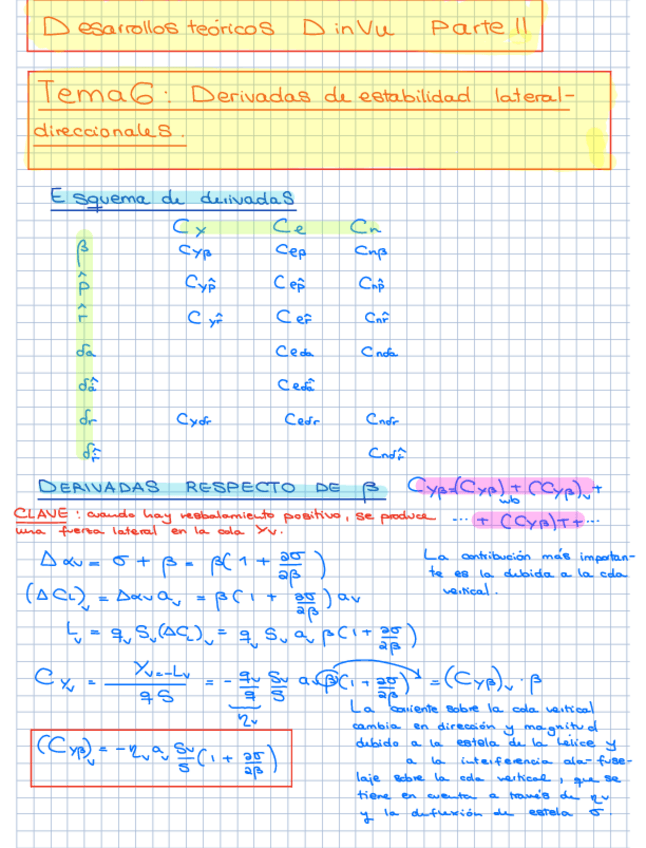 Desarrollos teóricos DinVu Parte II
Tema 6: Derivadas de estabilidad lateral-
direccionales.
Esquema de derivadas
Cx Ce Cn
β Cyβ Ceβ Cnβ
p̂ Cyp̂ Cep̂ Cnp̂
r̂ Cyr̂ Cer̂ Cnr̂
δa Ceδa Cnδa
δâ Ceδâ
δr Cyδr Ceδr Cnδr
δr̂ Cnδr̂
DERIVADAS RESPECTO DE β Cyβ=(Cyβ)wb + (Cyβ)v +
CLAVE: cuando hay resbalamiento positivo, se produce ... + (Cyβ)T+...
una fuerza lateral en la cola Yv.
Δαv = σ + β = β(1 + ∂σ/∂β)
La contribución más importan-
te es la debida a la cola
vertical.
(ΔCL)v = Δαv av = β(1 + ∂σ/∂β) av
Lv = qv Sv(ΔCL)v = qv Sv av β(1 + ∂σ/∂β)
CYv = Yv=-Lv / qS = - qv/q Sv/S av β(1 + ∂σ/∂β) = (Cyβ)v · β
ηv
(Cyβ)v = -ηv av Sv/S (1 + ∂σ/∂β)
La corriente sobre la cola vertical
cambia en dirección y magnitud
debido a la estela de la hélice y
a la interferencia ala-fuse-
laje sobre la cola vertical, que se
tiene en cuenta a través de ηv
y la deflexión de estela σ.